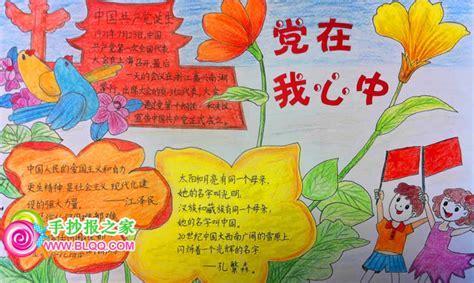 党在
我心中
中国共产党诞生
1921年7月23日,中国
共产党第一次全国代表
大会在上海召开,最后
一天的会议在浙江嘉兴南湖
举行,出席大会的
宣告中国共产党正式成立。
中国人民的爱国主义和自力
更生精神是社会主义现代化建
设的强大力量。
——江泽民
太阳和月亮有同一个母亲,
她的名字叫光明,
汉族和藏族有同一个母亲,
她的名字叫中国。
20世纪中国大西南广阔的雪原上,
闪烁着一个光辉的名字
——孔繁森。
手抄报之家
WWW.BLQQ.COM